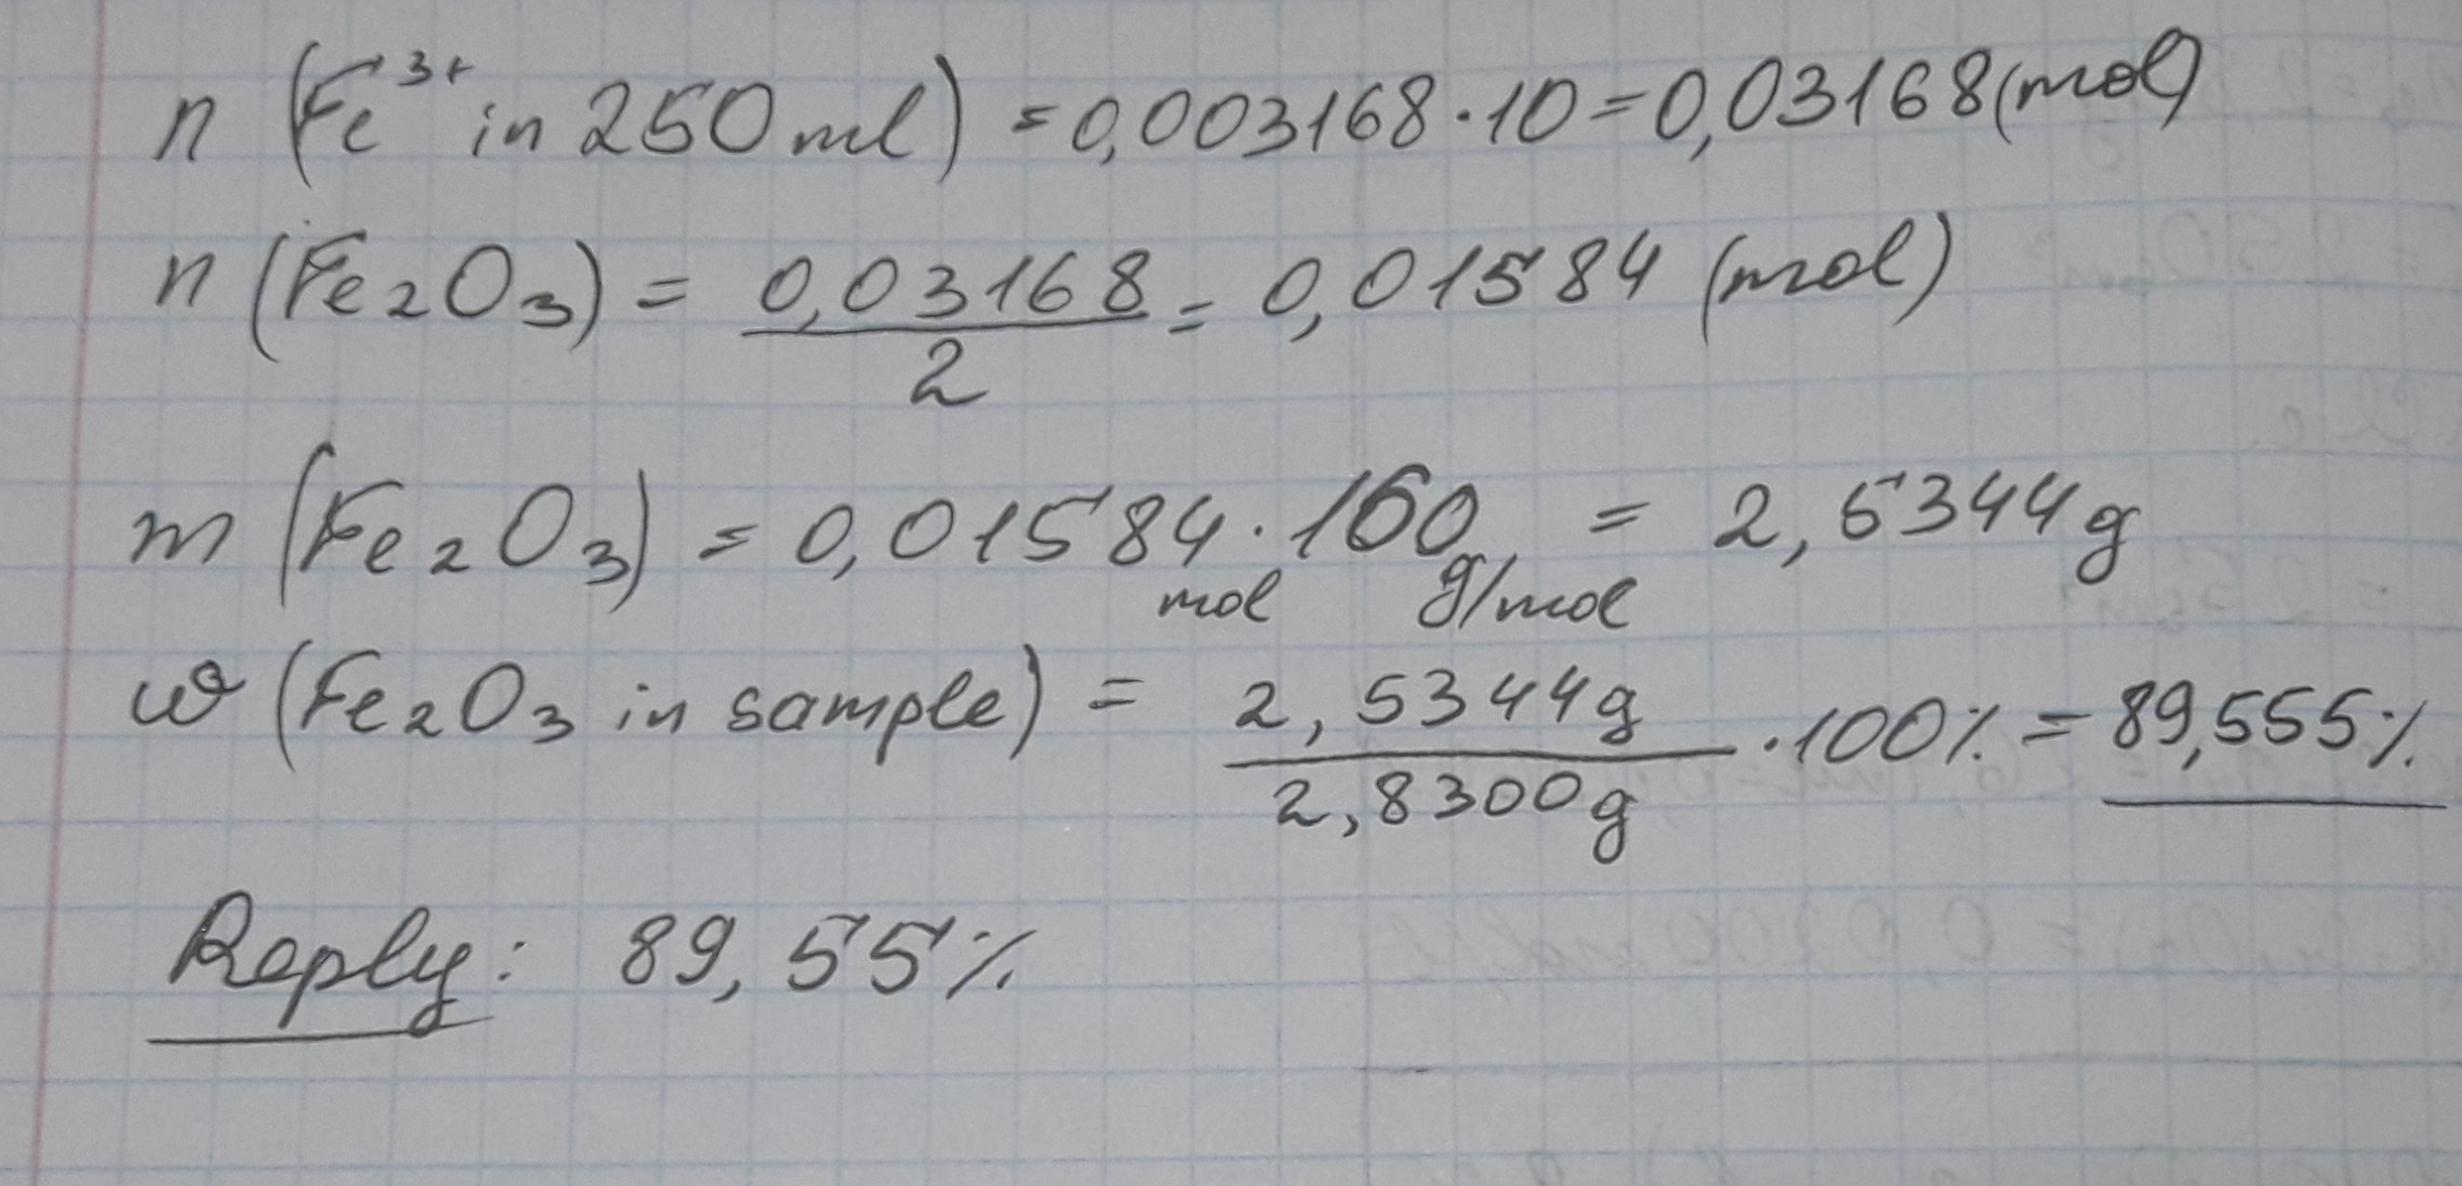 n (Fe³⁺ in 250 ml) = 0,003168 · 10 = 0,03168 (mol)
n (Fe₂O₃) = 0,03168 / 2 = 0,01584 (mol)
m (Fe₂O₃) = 0,01584 mol · 160 g/mol = 2,5344 g
ω (Fe₂O₃ in sample) = 2,5344 g / 2,8300 g · 100% = 89,555%
Reply: 89,55%